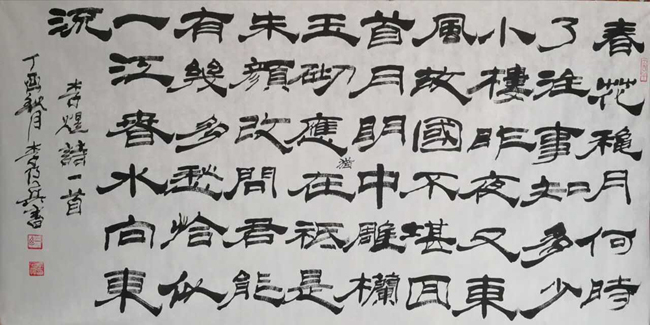 春花穐月何時
了往事知多少
小樓昨夜又東
風故國不堪回
首月明中雕欄
玉砌應猶在祗是
朱顔改問君能
有幾多愁恰似
一江春水向東
流
李煜詩一首
丁酉秋月李書